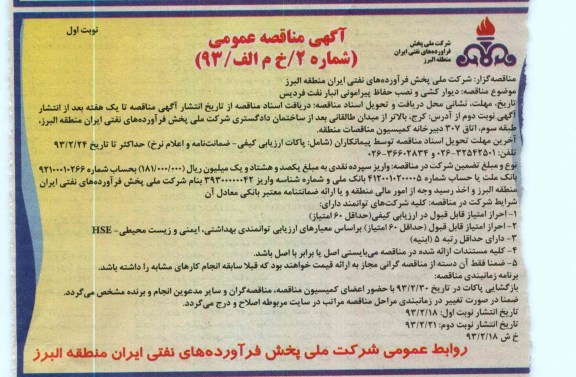 نوبت اول
آگهی مناقصه عمومی
(شماره ۲/خ م الف/۹۳)
شرکت ملی پخش
فرآورده‌های نفتی ایران
منطقه البرز
مناقصه‌گزار: شرکت ملی پخش فرآورده‌های نفتی ایران منطقه البرز
موضوع مناقصه: دیوار کشی و نصب حفاظ پیرامونی انبار نفت فردیس
تاریخ، مهلت، نشانی محل دریافت و تحویل اسناد مناقصه: دریافت اسناد مناقصه از تاریخ انتشار آگهی مناقصه تا یک هفته بعد از انتشار
آگهی نوبت دوم از آدرس: کرج، بالاتر از میدان طالقانی بعد از ساختمان دادگستری شرکت ملی پخش فرآورده‌های نفتی ایران منطقه البرز،
طبقه سوم، اتاق ۳۰۷ دبیرخانه کمیسیون مناقصات منطقه.
آخرین مهلت تحویل اسناد مناقصه توسط پیمانکاران (شامل: پاکات ارزیابی کیفی- ضمانت‌نامه و اعلام نرخ) حداکثر تا تاریخ ۹۳/۲/۲۴
تلفن: ۳۲۵۴۲۵۰۱-۰۲۶ و ۳۶۶۰۲۸۳۴-۰۲۶
نوع و مبلغ تضمین شرکت در مناقصه: واریز سپرده نقدی به مبلغ یکصد و هشتاد و یک میلیون ریال (۱۸۱/۰۰۰/۰۰۰) بحساب شماره ۹۲۱۰۰۰۱۰۲۶۶
بانک ملت یا حساب شماره ۴۱۲۰۰۱۰۲۰۰۰۰۵ بانک ملی و شماره شناسه واریز ۳۹۳۰۰۰۰۰۰۴۲ بنام شرکت ملی پخش فرآورده‌های نفتی ایران
منطقه البرز و اخذ رسید وجه از امور مالی منطقه و یا ارائه ضمانتنامه معتبر بانکی معادل آن
شرایط شرکت در مناقصه: کلیه شرکت‌های توانمند دارای:
۱- احراز امتیاز قابل قبول در ارزیابی کیفی(حداقل ۶۰ امتیاز)
۲- احراز امتیاز قابل قبول (حداقل ۶۰ امتیاز) براساس معیارهای ارزیابی توانمندی بهداشتی، ایمنی و زیست محیطی- HSE
۳- دارای حداقل رتبه ۵ (ابنیه)
۴- کلیه مستندات ارائه شده در مناقصه می‌بایستی اصل یا برابر با اصل باشد.
۵- ضمنا فقط آن دسته از مناقصه گرانی مجاز به ارائه قیمت خواهند بود که قبلا سابقه انجام کارهای مشابه را داشته باشد.
برنامه زمانبندی مناقصه:
بازگشایی پاکات در تاریخ ۹۳/۲/۳۰ با حضور اعضای کمیسیون مناقصه، مناقصه‌گران و سایر مدعوین انجام و برنده مشخص می‌گردد.
ضمنا در صورت تغییر در زمانبندی مراحل مناقصه مراتب در سایت مربوطه اصلاح و درج می‌گردد.
تاریخ انتشار نوبت اول: ۹۳/۲/۱۸
تاریخ انتشار نوبت دوم: ۹۳/۲/۲۱
خ ش ۹۳/۲/۱۸
روابط عمومی شرکت ملی پخش فرآورده‌های نفتی ایران منطقه البرز